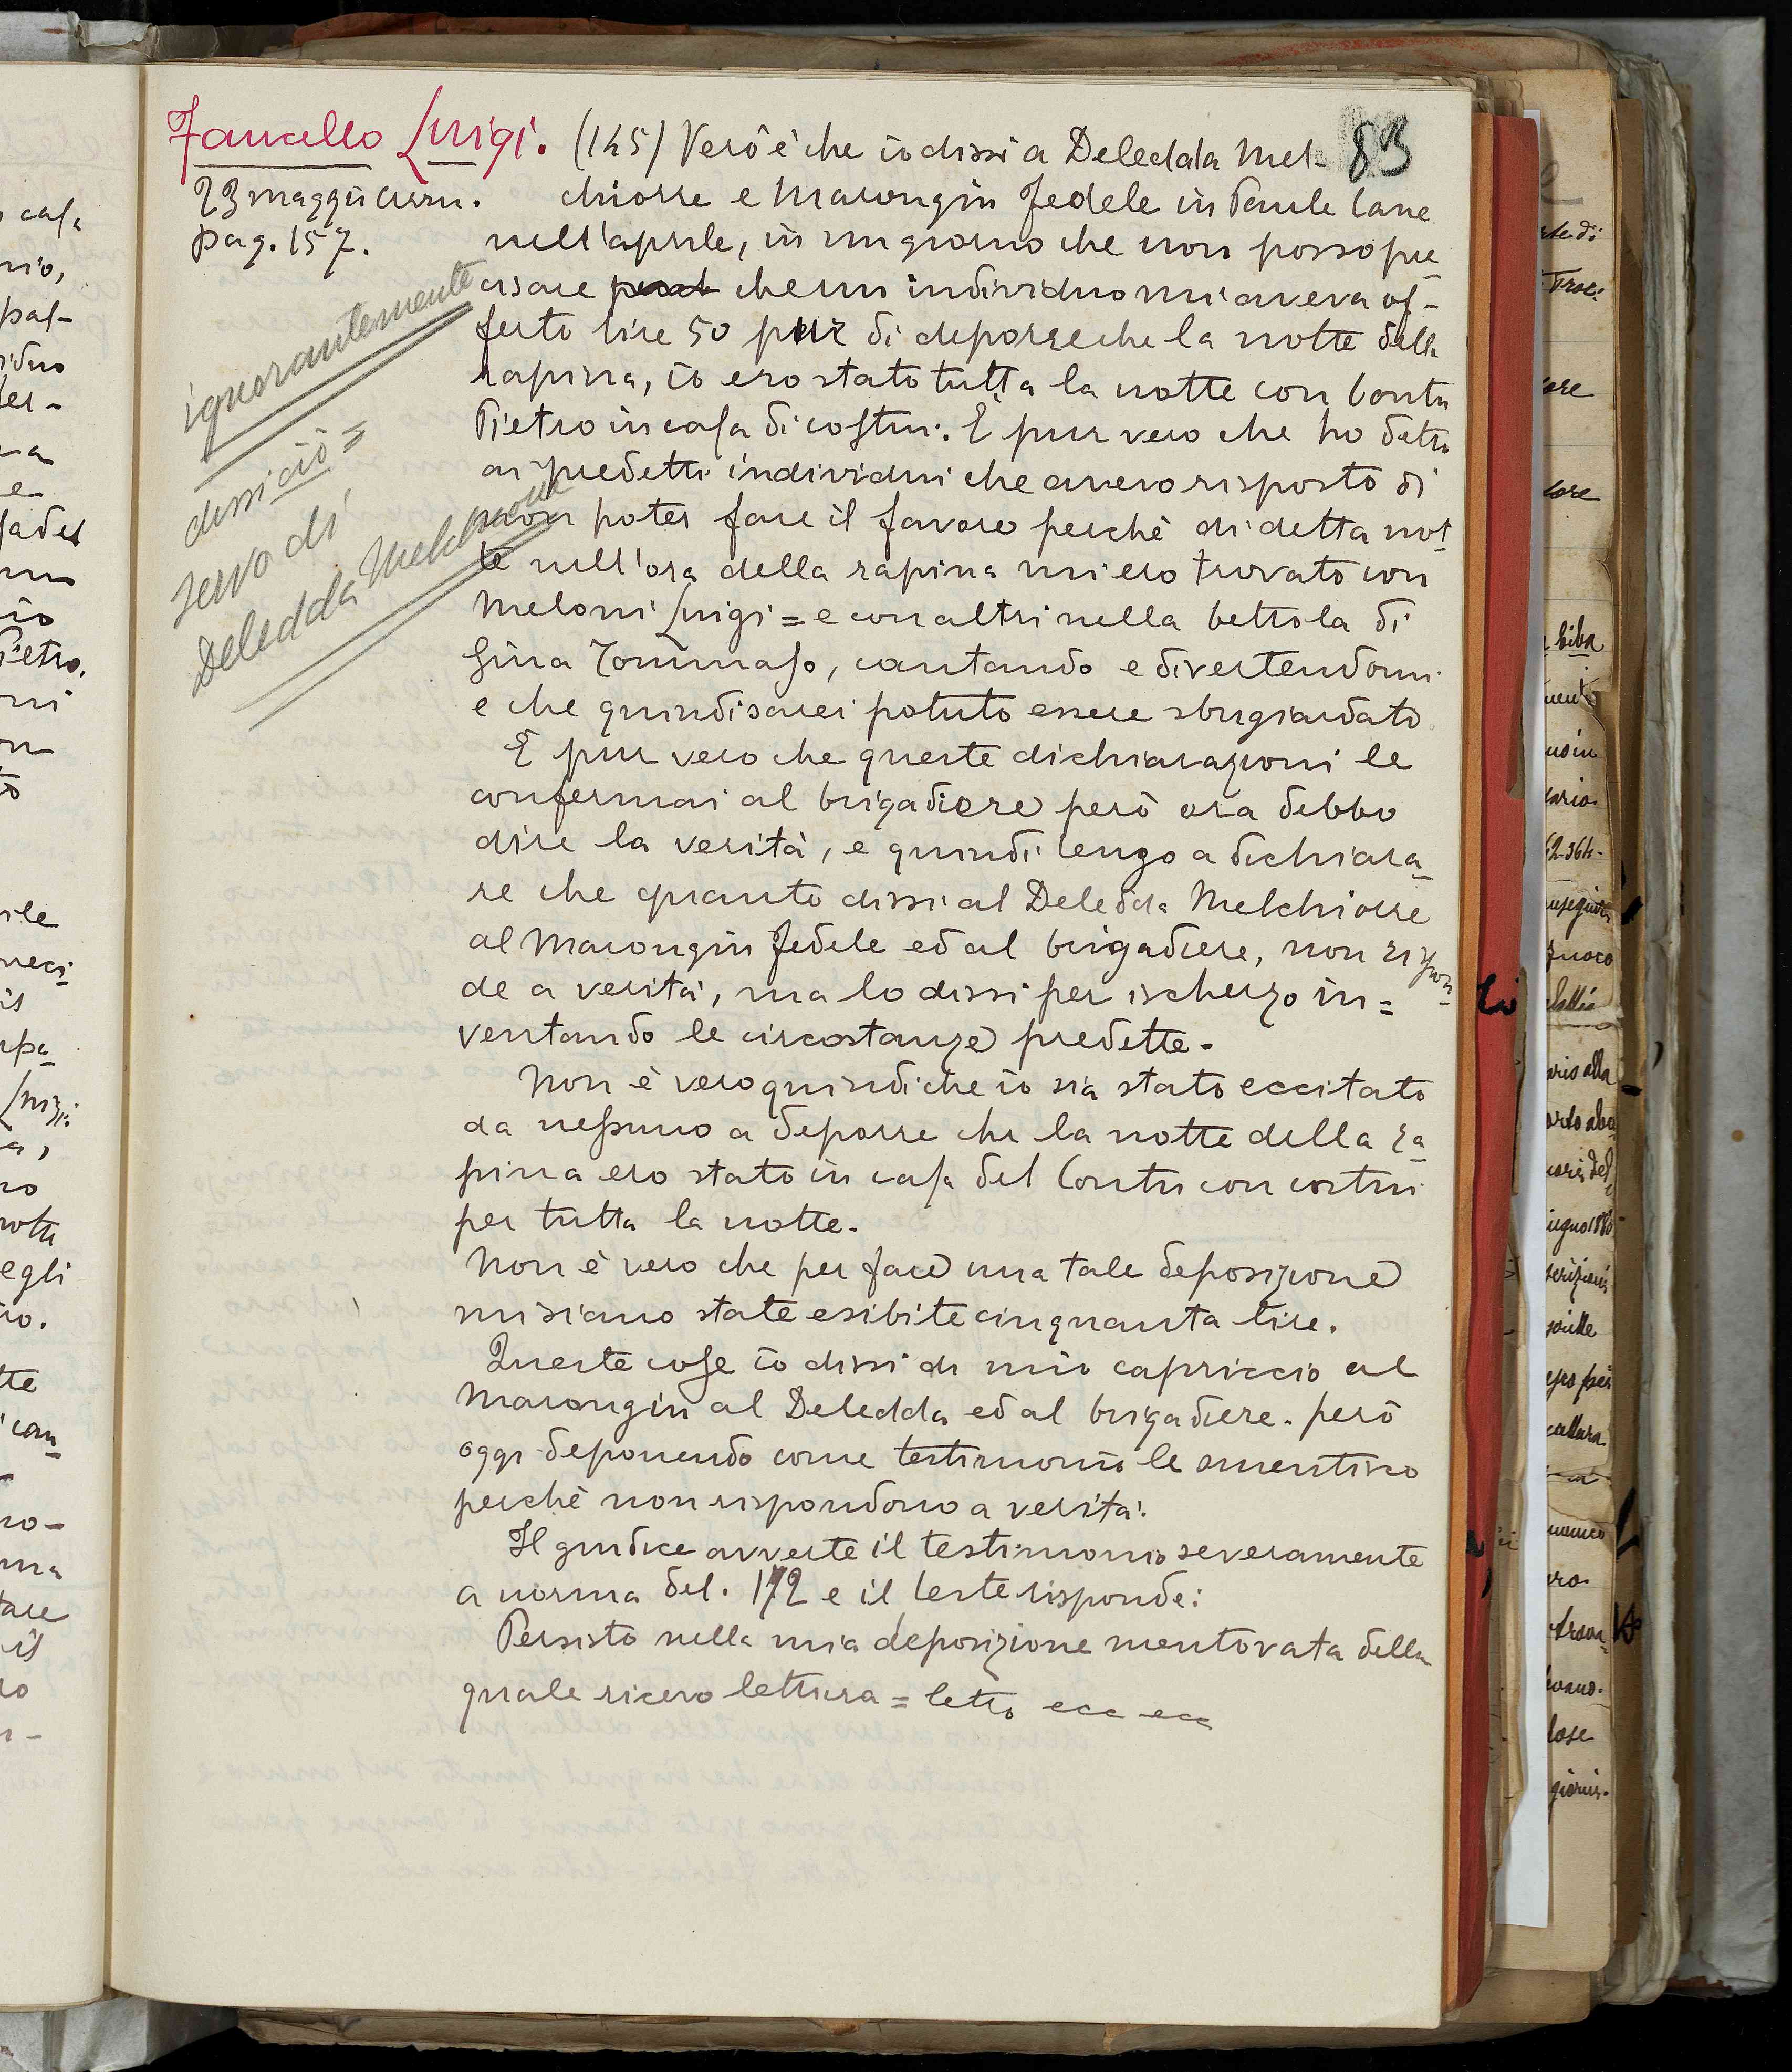 Fancello Luigi. (145) Vero è che io dissi a Deledda Mel-
83
23 maggio
pag. 157.
chiorre e Marongiu Fedele in Paule Cane
nell'aprile, in un giorno che non posso pre-
cisare che un individuo mi aveva of-
ferto lire 50 pur di deporre che la notte della
rapina, io ero stato tutta la notte con Contu
Pietro in casa di costui. È pur vero che ho detto
ai predetti individui che avevo risposto di
non poter fare il favore perchè di detta not-
te nell'ora della rapina mi ero trovato con
Meloni Luigi = e con altri nella bettola di
Sina Tommaso, cantando e divertendomi
e che quindi sarei potuto essere sbugiardato
È pur vero che queste dichiarazioni le
confermai al brigadiere però ora debbo
dire la verità, e quindi tengo a dichiara-
re che quanto dissi al Deledda Melchiorre
al Marongiu Fedele ed al brigadiere, non rispon-
de a verità, ma lo dissi per ischerzo in=
ventando le circostanze predette.
Non è vero quindi che io sia stato eccitato
da nessuno a deporre che la notte della ra-
pina ero stato in casa del Contu con costui
per tutta la notte.
Non è vero che per fare una tale deposizione
mi siano state esibite cinquanta lire.
Queste cose io dissi di mio capriccio al
Marongiu al Deledda ed al brigadiere. però
oggi deponendo come testimonio le smentisco
perchè non rispondono a verità.
Il giudice avverte il testimonio severamente
a norma del. 172 e il teste risponde:
Persisto nella mia deposizione mentovata della
quale ricevo lettura = letto ecc ecc
ignorantemente
dissi ciò =
servo di
Deledda Melchiorre